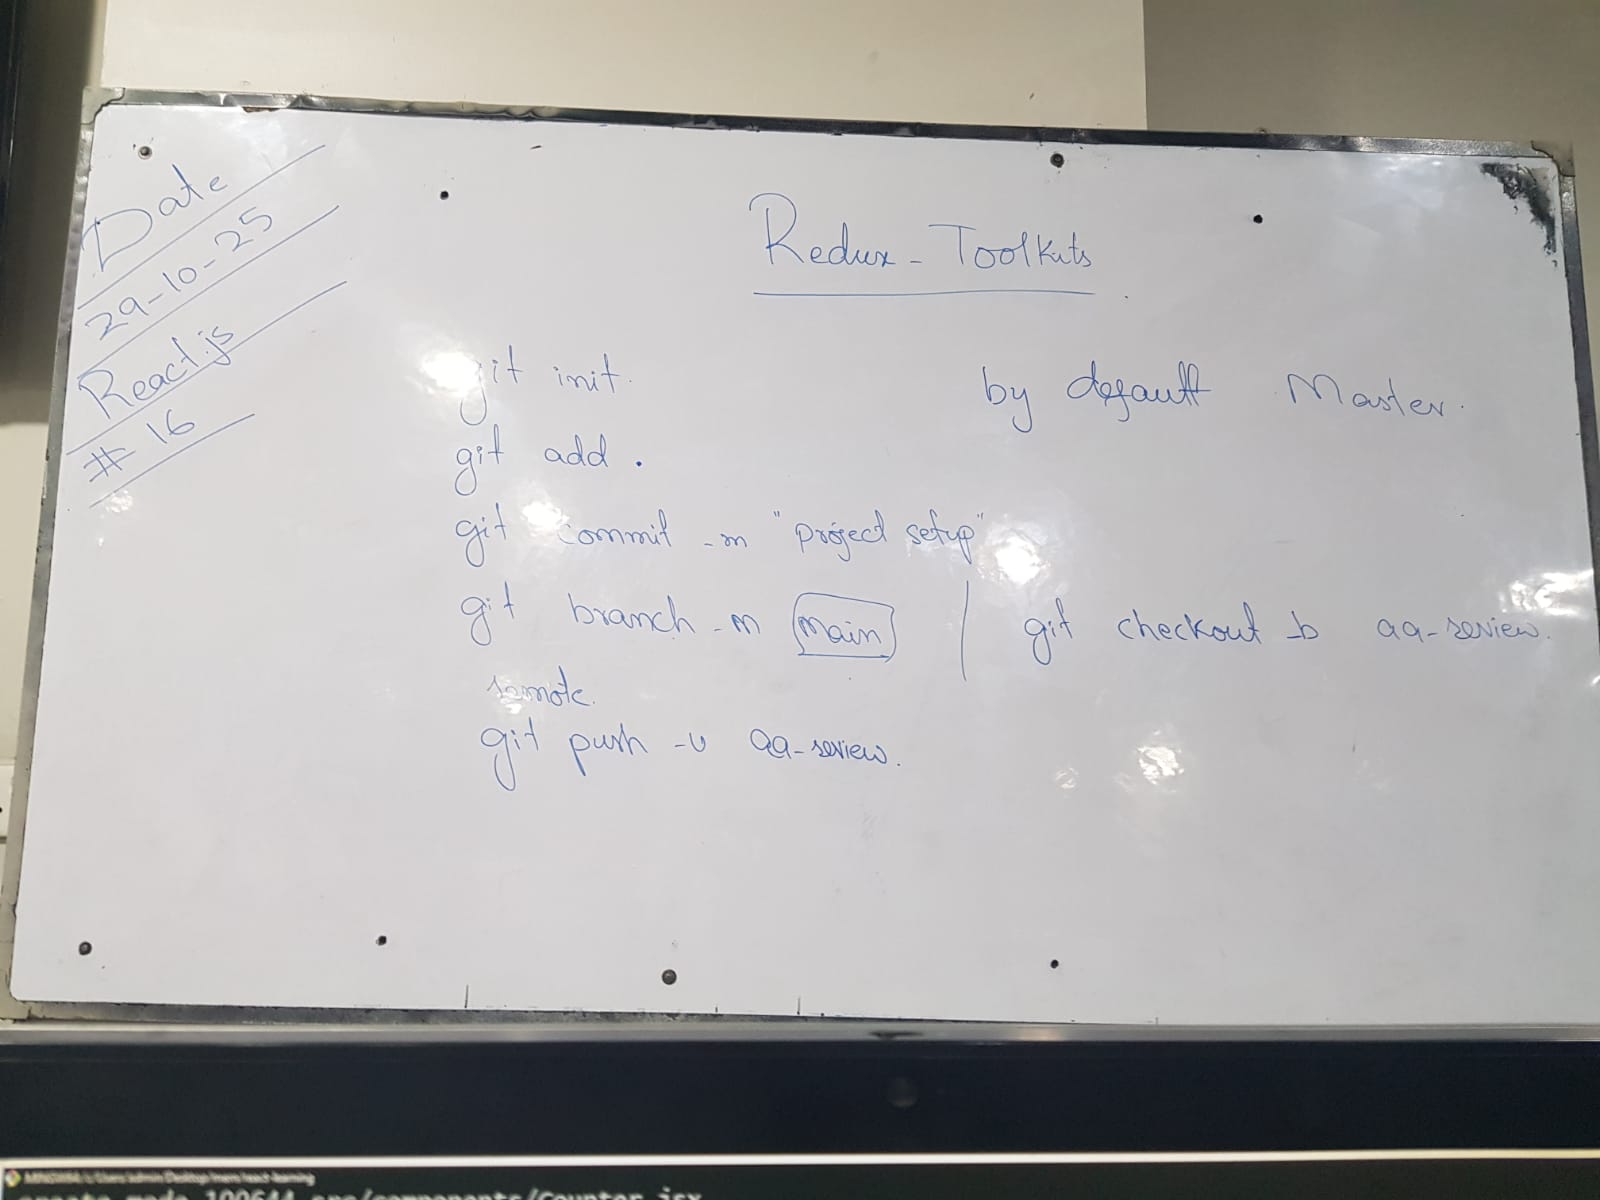 Date
29-10-25
React.js
# 16
Redux - Toolkits
git init.
by default Master.
git add .
git commit -m "project setup"
git branch -m main | git checkout -b qa-review.
remote.
git push -u qa-review.
create mode 100644 src/components/Counter.jsx